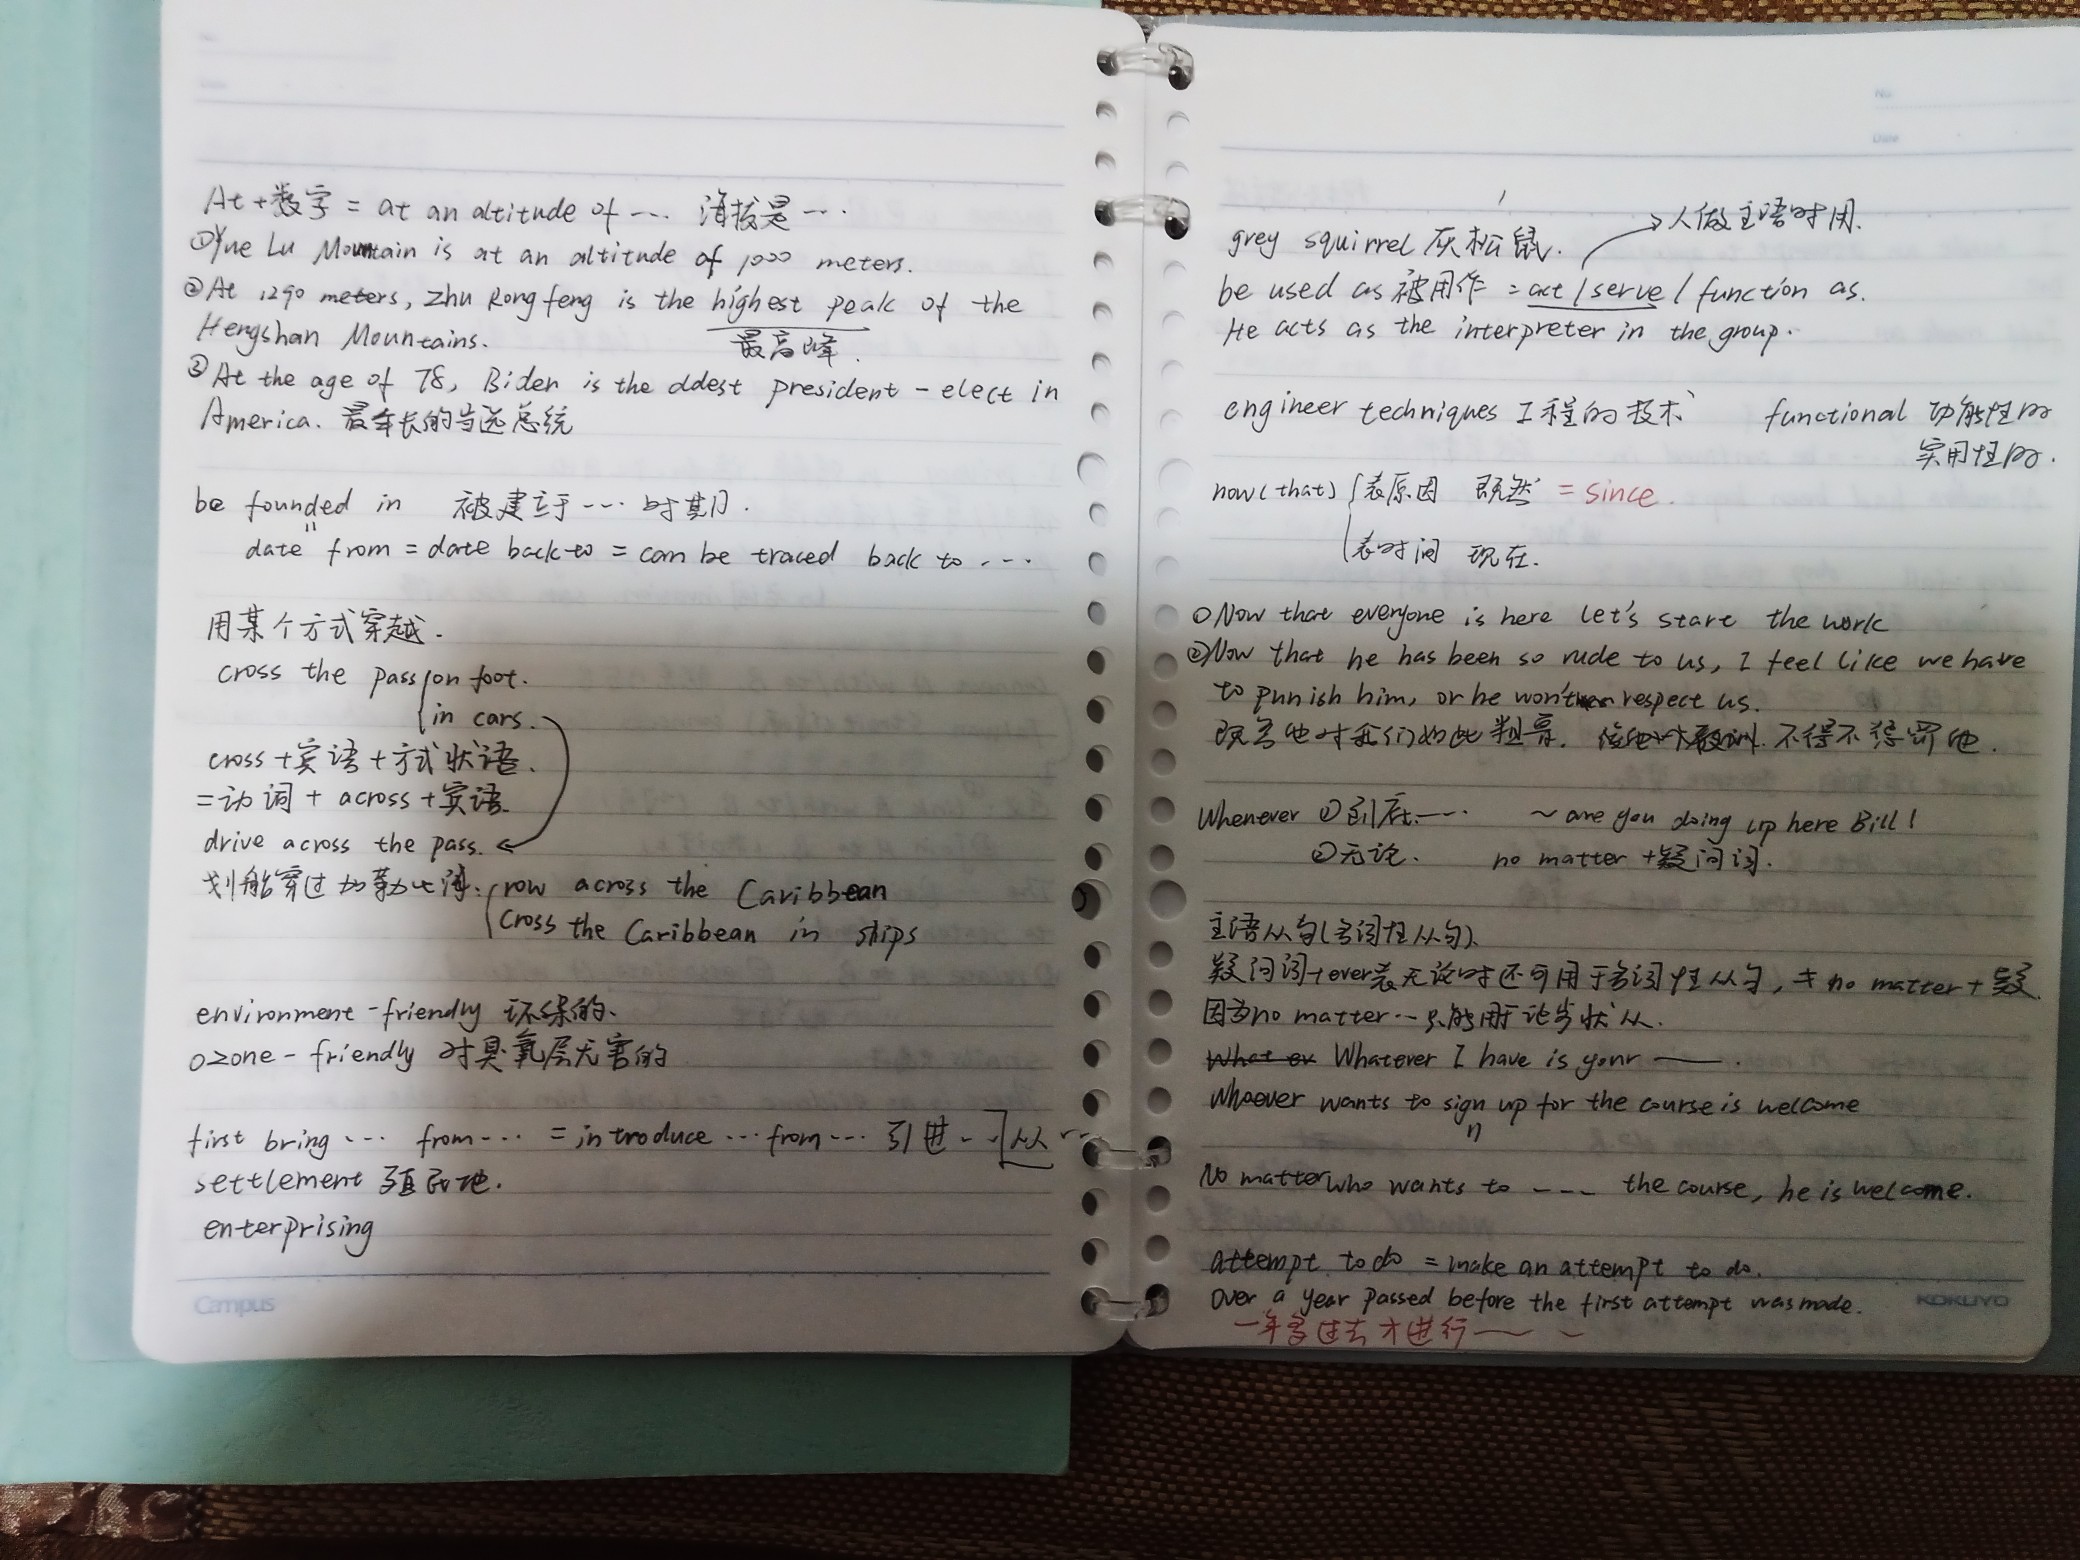 At+数字 = at an altitude of … 海拔是…
①Yue Lu Mountain is at an altitude of 1000 meters.
②At 1290 meters, Zhu Rong feng is the highest peak of the
Hengshan Mountains. 最高峰.
③At the age of 78, Biden is the oldest president-elect in
America. 最年长的当选总统
be founded in 被建立于…时期.
"
date from = date back to = can be traced back to …
用某个方式穿越.
cross the pass on foot.
in cars.
cross+宾语+方式状语.
=动词+across+宾语.
drive across the pass.
划船穿过加勒比海: row across the Caribbean
Cross the Caribbean in ships
environment-friendly 环保的、
ozone-friendly 对臭氧层无害的
first bring … from … = introduce … from … 引进…从…
settlement 殖民地.
enterprising
Campus
No
Date
人做主语时用.
grey squirrel 灰松鼠.
be used as 被用作 = act / serve / function as.
He acts as the interpreter in the group.
engineer techniques 工程的技术 functional 功能性的
实用性的.
now(that) 表原因 既然 = since.
表时间 现在.
①Now that everyone is here let's start the work
②Now that he has been so rude to us, I feel like we have
to punish him, or he won't respect us.
既然他对我们如此粗鲁. 不得不惩罚他.
Whenever ①到底… ~ are you doing up here Bill!
②无论. no matter +疑问词.
主语从句(名词性从句).
疑问词+ever表无论时还可用于名词性从句, ≠ no matter + 疑
因为no matter … 只能用于让步状从.
What ev Whatever I have is your —.
Whoever wants to sign up for the course is welcome
n
No matter who wants to --- the course, he is welcome.
attempt to do = make an attempt to do.
Over a year passed before the first attempt was made.
KOKUYO
一年多过去才进行—~